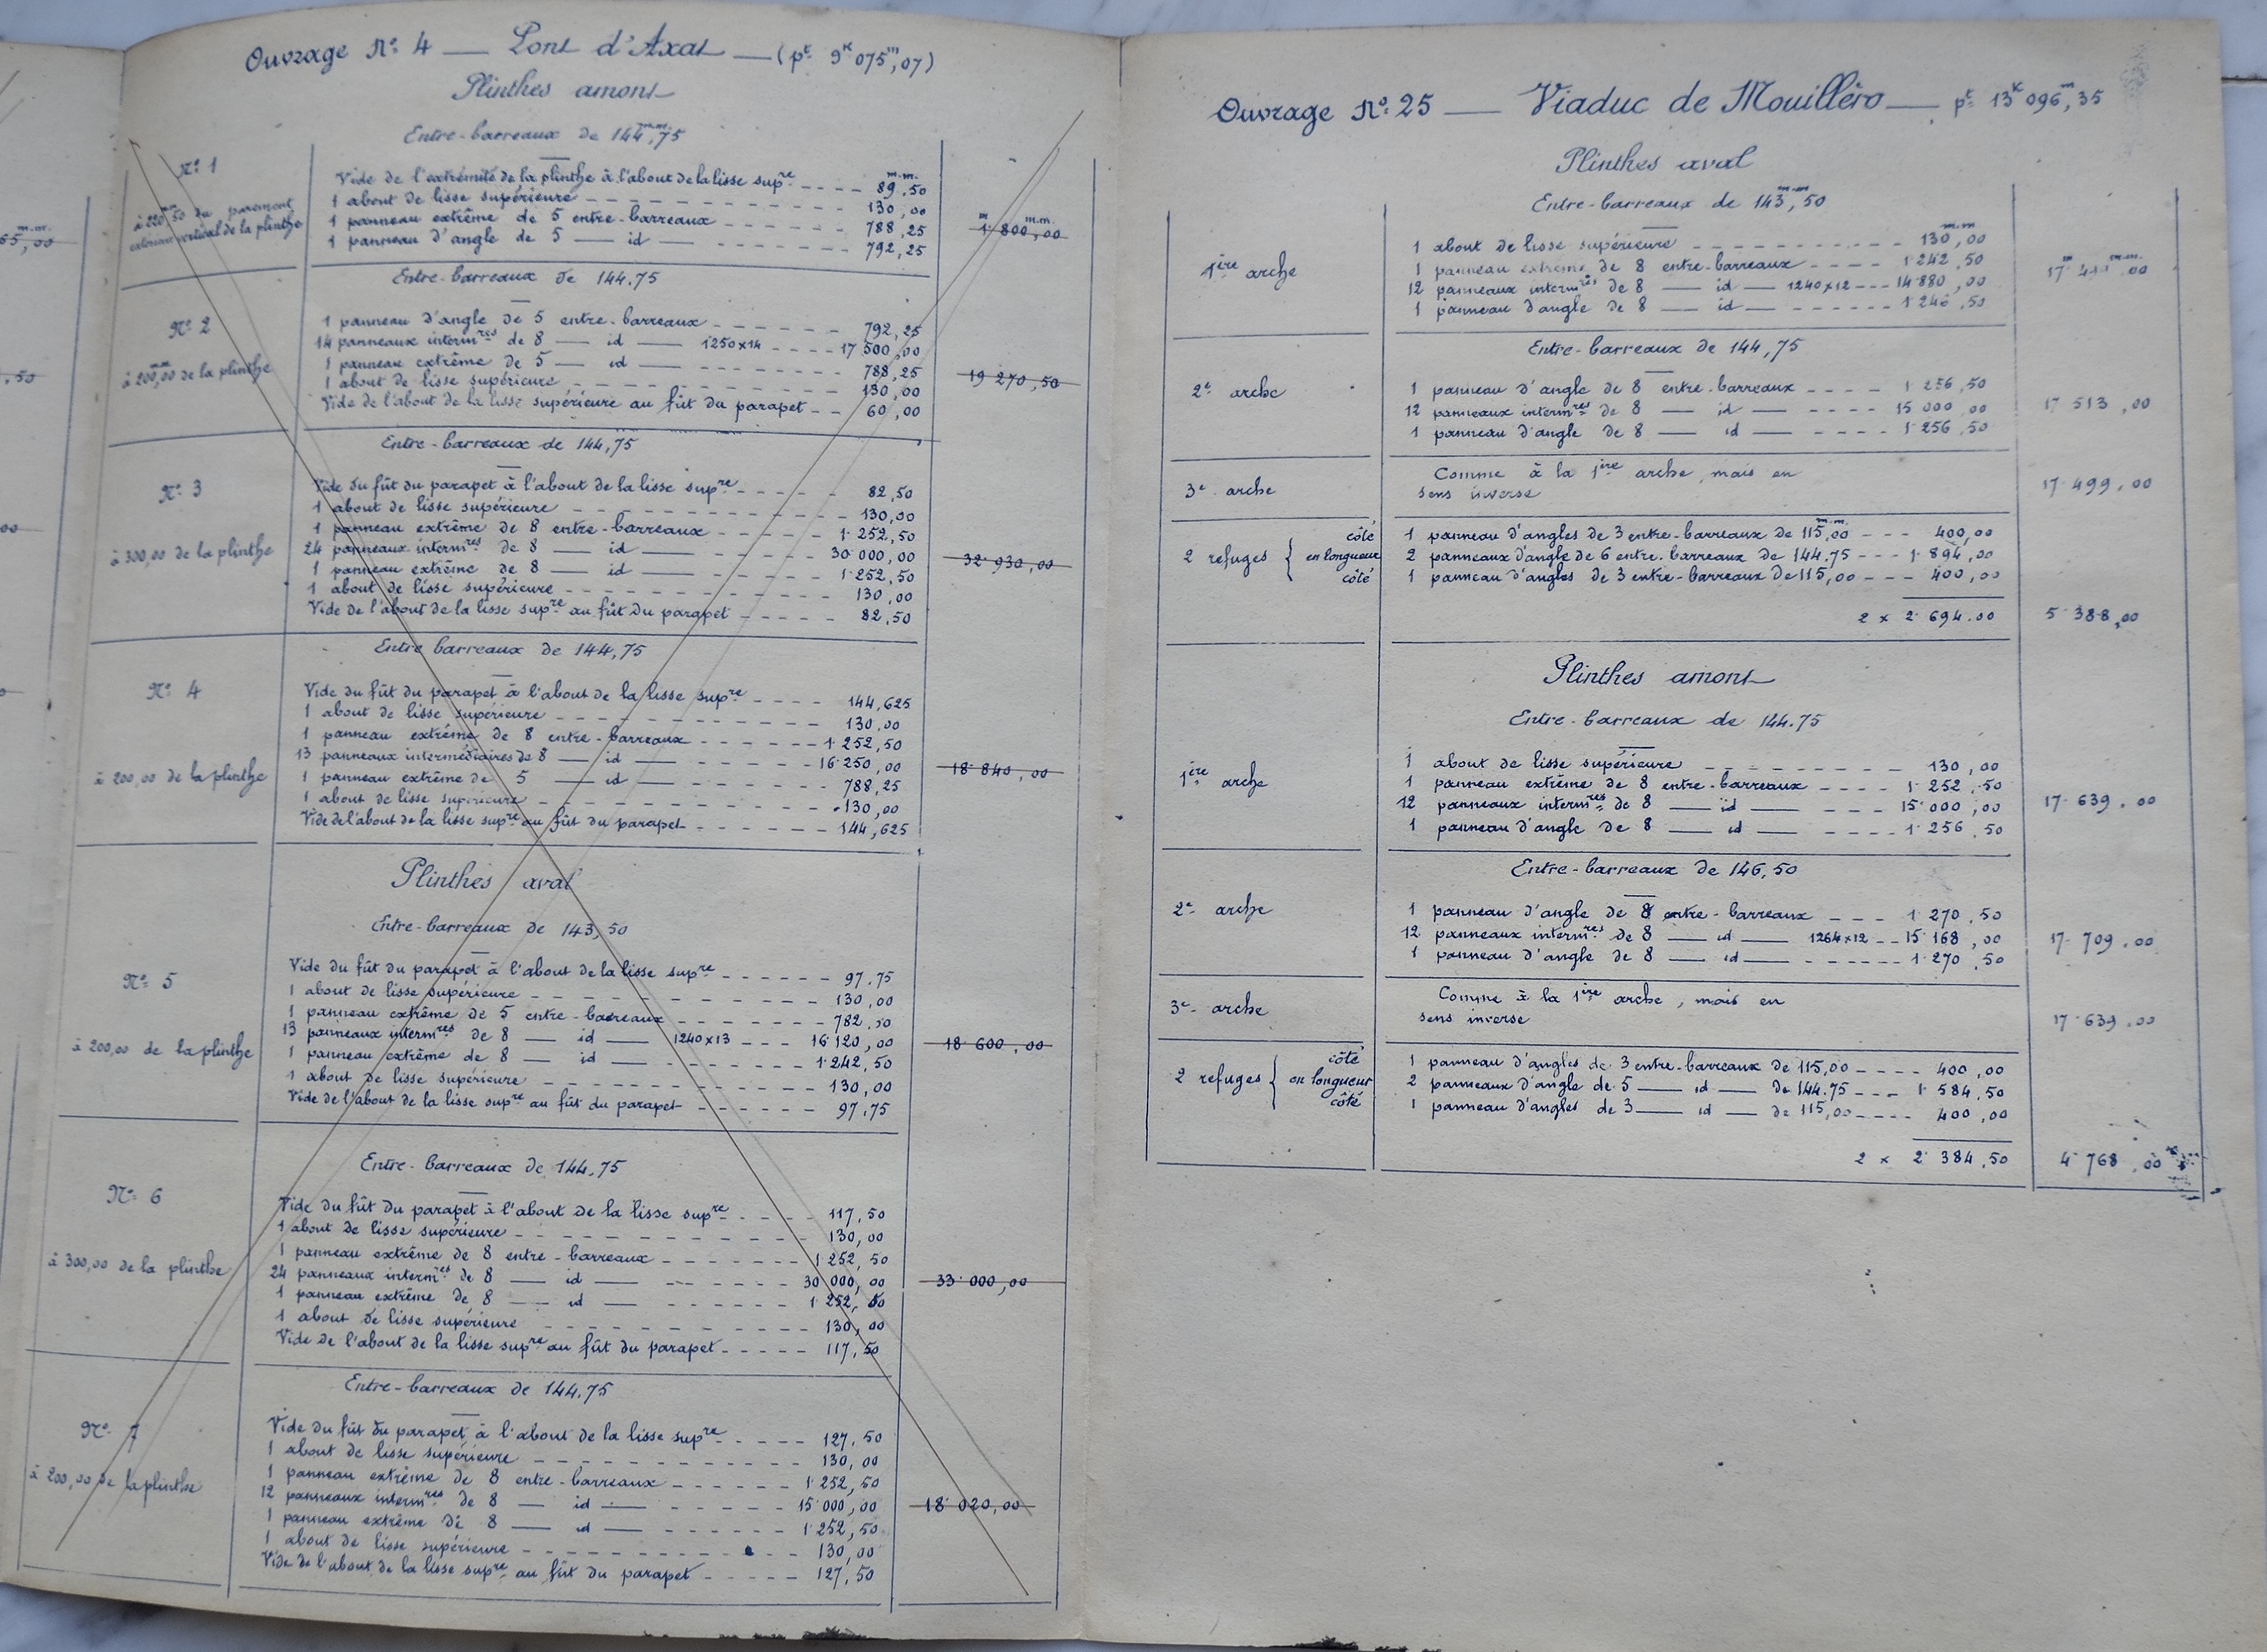 65,00
,50
00
0
Ouvrage N° 4 — Pont d'Axat — (pt 9k 075m,07)
Plinthes amont
Entre-barreaux de 144mm,75
N° 1
à 220mm,50 du parement
extérieur vertical de la plinthe
Vide de l'extrémité de la plinthe à l'about de la lisse supre ---- 89mm,50
1 about de lisse supérieure ---- 130,00
1 panneau extrême de 5 entre-barreaux ---- 788,25
1 panneau d'angle de 5 — id — ---- 792,25
1m 800mm,00
Entre-barreaux de 144,75
N° 2
à 200mm,00 de la plinthe
1 panneau d'angle de 5 entre-barreaux ---- 792,25
14 panneaux intermres de 8 — id — 1250x14 ---- 17 500,00
1 panneau extrême de 5 — id ---- 788,25
1 about de lisse supérieure ---- 130,00
Vide de l'about de la lisse supérieure au fût du parapet -- 60,00
19 270,50
Entre-barreaux de 144,75
N° 3
à 300,00 de la plinthe
Vide du fût du parapet à l'about de la lisse supre ---- 82,50
1 about de lisse supérieure ---- 130,00
1 panneau extrême de 8 entre-barreaux ---- 1 252,50
24 panneaux intermres de 8 — id — ---- 30 000,00
1 panneau extrême de 8 — id — ---- 1 252,50
1 about de lisse supérieure ---- 130,00
Vide de l'about de la lisse supre au fût du parapet ---- 82,50
32 930,00
Entre barreaux de 144,75
N° 4
à 200,00 de la plinthe
Vide du fût du parapet à l'about de la lisse supre ---- 144,625
1 about de lisse supérieure ---- 130,00
1 panneau extrême de 8 entre-barreaux ---- 1 252,50
13 panneaux intermédiaires de 8 — id — ---- 16 250,00
1 panneau extrême de 5 — id — ---- 788,25
1 about de lisse supérieure ---- 130,00
Vide de l'about de la lisse supre au fût du parapet ---- 144,625
18 840,00
Plinthes aval
Entre-barreaux de 143,50
N° 5
à 200,00 de la plinthe
Vide du fût du parapet à l'about de la lisse supre ---- 97,75
1 about de lisse supérieure ---- 130,00
1 panneau extrême de 5 entre-barreaux ---- 782,50
13 panneaux intermres de 8 — id — 1240x13 --- 16 120,00
1 panneau extrême de 8 — id — ---- 1 242,50
1 about de lisse supérieure ---- 130,00
Vide de l'about de la lisse supre au fût du parapet ---- 97,75
18 600,00
Entre-barreaux de 144,75
N° 6
à 300,00 de la plinthe
Vide du fût du parapet à l'about de la lisse supre ---- 117,50
1 about de lisse supérieure ---- 130,00
1 panneau extrême de 8 entre-barreaux ---- 1 252,50
24 panneaux intermres de 8 — id — ---- 30 000,00
1 panneau extrême de 8 — id — ---- 1 252,50
1 about de lisse supérieure ---- 130,00
Vide de l'about de la lisse supre au fût du parapet ---- 117,50
33 000,00
Entre-barreaux de 144,75
N° 7
à 200,00 de la plinthe
Vide du fût du parapet à l'about de la lisse supre ---- 127,50
1 about de lisse supérieure ---- 130,00
1 panneau extrême de 8 entre-barreaux ---- 1 252,50
12 panneaux intermres de 8 — id — ---- 15 000,00
1 panneau extrême de 8 — id — ---- 1 252,50
1 about de lisse supérieure ---- 130,00
Vide de l'about de la lisse supre au fût du parapet ---- 127,50
18 020,00
Ouvrage N° 25 — Viaduc de Mouilléro — pt 13k 096m,35
Plinthes aval
Entre-barreaux de 143mm,50
1ère arche
1 about de lisse supérieure ---- 130mm,00
1 panneau extrême de 8 entre-barreaux ---- 1 242,50
12 panneaux intermres de 8 — id — 1240x12 --- 14 880,00
1 panneau d'angle de 8 — id — ---- 1 246,50
17m 499mm,00
Entre-barreaux de 144,75
2e arche
1 panneau d'angle de 8 entre-barreaux ---- 1 256,50
12 panneaux intermres de 8 — id — ---- 15 000,00
1 panneau d'angle de 8 — id — ---- 1 256,50
17 513,00
3e arche
Comme à la 1ère arche, mais en
sens inverse
17 499,00
2 refuges { côté
en longueur
côté
1 panneau d'angles de 3 entre-barreaux de 115mm,00 --- 400,00
2 panneaux d'angle de 6 entre-barreaux de 144.75 --- 1 894,00
1 panneau d'angles de 3 entre-barreaux de 115,00 --- 400,00
2 x 2 694.00
5 388,00
Plinthes amont
Entre-barreaux de 144.75
1ère arche
1 about de lisse supérieure ---- 130,00
1 panneau extrême de 8 entre-barreaux ---- 1 252,50
12 panneaux intermres de 8 — id — ---- 15 000,00
1 panneau d'angle de 8 — id — ---- 1 256,50
17 639,00
Entre-barreaux de 146,50
2e arche
1 panneau d'angle de 8 entre-barreaux --- 1 270,50
12 panneaux intermres de 8 — id — 1264x12 -- 15 168,00
1 panneau d'angle de 8 — id — ---- 1 270,50
17 709,00
3e arche
Comme à la 1ère arche, mais en
sens inverse
17 639,00
2 refuges { côté
en longueur
côté
1 panneau d'angles de 3 entre-barreaux de 115,00 ---- 400,00
2 panneaux d'angle de 5 — id — de 144.75 --- 1 584,50
1 panneau d'angles de 3 — id — de 115,00 ---- 400,00
2 x 2 384,50
4 768,00